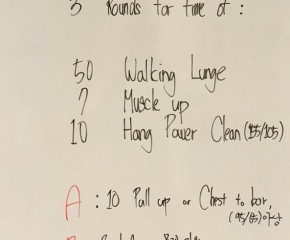 3 Rounds for time of :
50 Walking Lunge
7 Muscle up
10 Hang Power Clean (155/105)
A : 10 Pull up or Chest to bar,
(95/65)이상